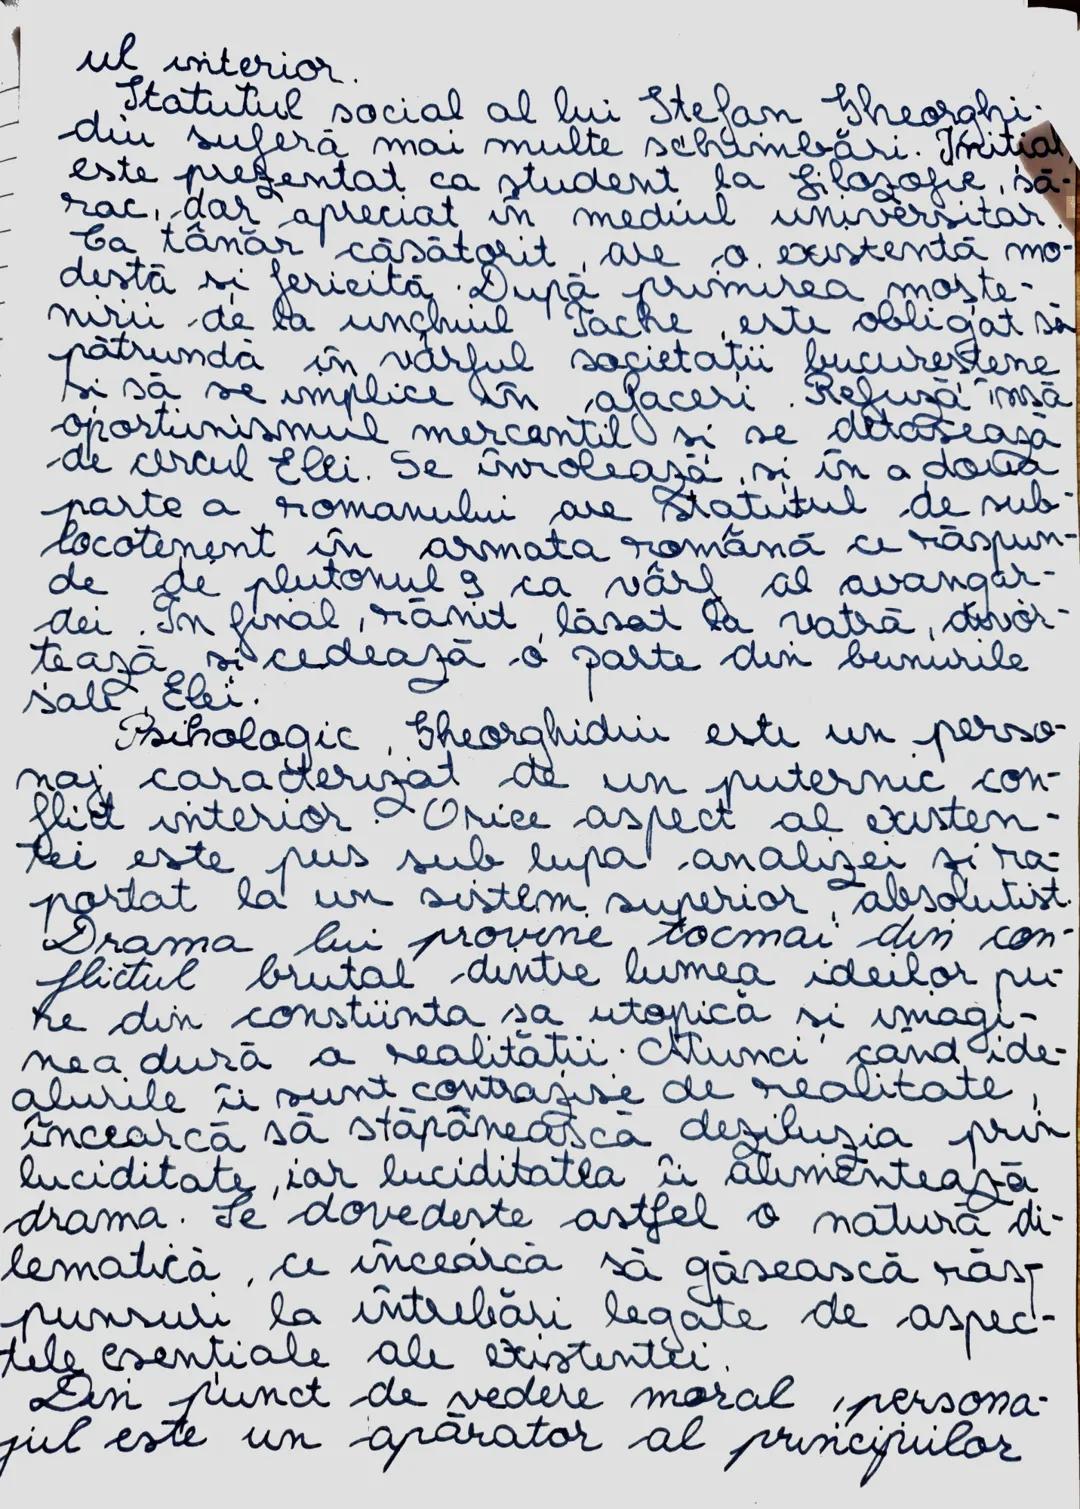 ul interior.
Statutul social al lui Stefan Gheorghi-
diu suferă mai multe schimbări. Initial,
este prezentat ca student la filozofie, să-
rac, dar apreciat în mediul universitar.
Ca tânăr căsătorit, are o existentă mo-
destă si fericită. După primirea moste-
nirii de la unchiul Tache, este obligat să
pătrundă în vârful societatii bucurestene
si să se implice în afaceri. Refuză însă
oportunismul mercantil si se detasează
de cercul Elei. Se înrolează si în a doua
parte a romanului are statutul de sub-
locotenent în armata română ce răspun-
de de plutonul 9 ca vârf al avangar-
dei. În final, rănit, lăsat la vatră, divor-
tează si cedează o parte din bunurile
sale, Elei.
Psihologic, Gheorghidiu este un perso-
naj caracterizat de un puternic con-
flict interior. Orice aspect al existen-
tei este pus sub lupa analizei si ra-
portat la un sistem superior, absolutist.
Drama lui provine tocmai din con-
flictul brutal dintre lumea ideilor pu-
re din constiinta sa utopică si imagi-
nea dură a realitătii. Atunci când ide-
alurile îi sunt contrazise de realitate,
încearcă să stăpânească deziluzia prin
luciditate, iar luciditatea îi alimentează
drama. Se dovedeste astfel o natură di-
lematică, ce încearcă să găsească răs-
punsuri la întrebări legate de aspec-
tele esentiale ale existentei.
Din punct de vedere moral, persona-
jul este un apărator al principiilor